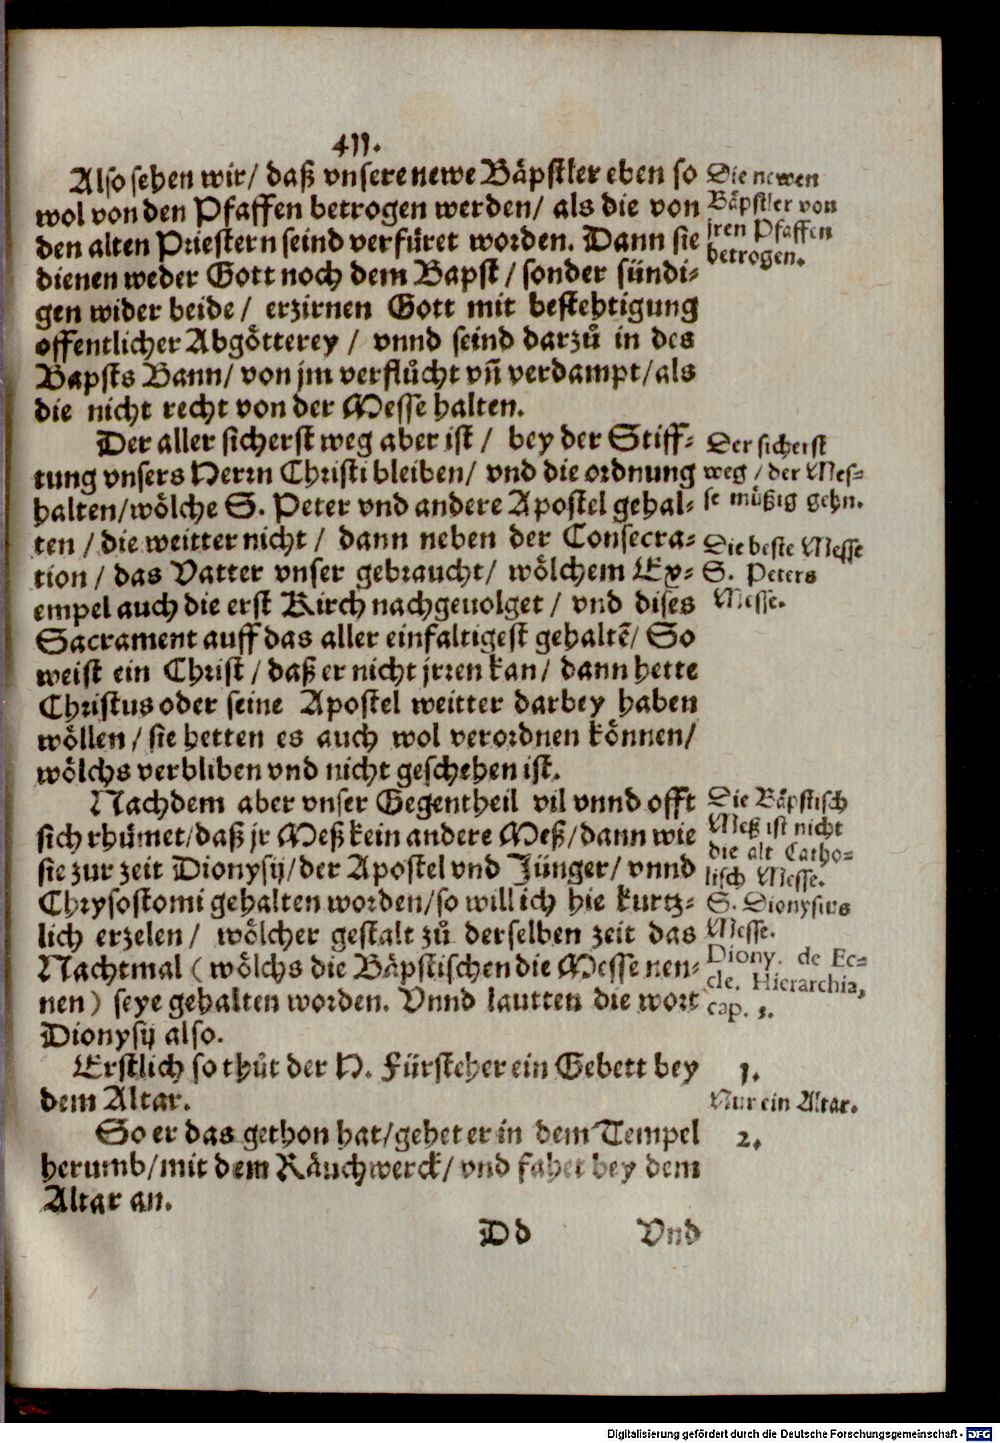 411.
Also sehen wir/ daß vnsere newe Bäpstler eben so
wol von den Pfaffen betrogen werden/ als die von
den alten Priestern seind verfüret worden. Dann sie
dienen weder Gott noch dem Bapst/ sonder sündi-
gen wider beide/ erzirnen Gott mit bestehtigung
offentlicher Abgötterey/ vnnd seind darzů in des
Bapsts Bann/ von jm verflůcht vñ verdampt/ als
die nicht recht von der Messe halten.
Die newen
Bäpstler von
jren Pfaffen
betrogen.
Der aller sicherst weg aber ist/ bey der Stiff-
tung vnsers Herrn Christi bleiben/ vnd die ordnung
halten/ wölche S. Peter vnd andere Apostel gehal-
ten/ die weitter nicht/ dann neben der Consecra-
tion/ das Vatter vnser gebraucht/ wölchem Ex-
empel auch die erst Kirch nachgeuolget/ vnd dises
Sacrament auff das aller einfaltigest gehaltẽ/ So
weist ein Christ/ daß er nicht jrren kan/ dann hette
Christus oder seine Apostel weitter darbey haben
wöllen/ sie hetten es auch wol verordnen können/
wölchs verbliben vnd nicht geschehen ist.
Der sicherst
weg/ der Mes-
se müßig gehn.
Die beste Messe
S. Peters
Messe.
Nachdem aber vnser Gegentheil vil vnnd offt
sich rhümet/ daß jr Meß kein andere Meß/ dann wie
sie zur zeit Dionysij/ der Apostel vnd Jünger/ vnnd
Chrysostomi gehalten worden/ so will ich hie kurtz-
lich erzelen/ wölcher gestalt zů derselben zeit das
Nachtmal (wölchs die Bäpstischen die Messe nen-
nen) seye gehalten worden. Vnnd lautten die wort
Dionysij also.
Die Bäpstisch
Meß ist nicht
die alt Catho-
lisch Messe.
S. Dionysius
Messe.
Diony. de Ec-
cle. Hierarchia,
cap. 3.
Erstlich so thůt der H. Fürsteher ein Gebett bey
dem Altar.
1.
Nur ein Altar.
So er das gethon hat/ gehet er in dem Tempel
herumb/ mit dem Räuchwerck/ vnd fahet bey dem
Altar an.
2.
Dd Vnd
Digitalisierung gefördert durch die Deutsche Forschungsgemeinschaft - DFG